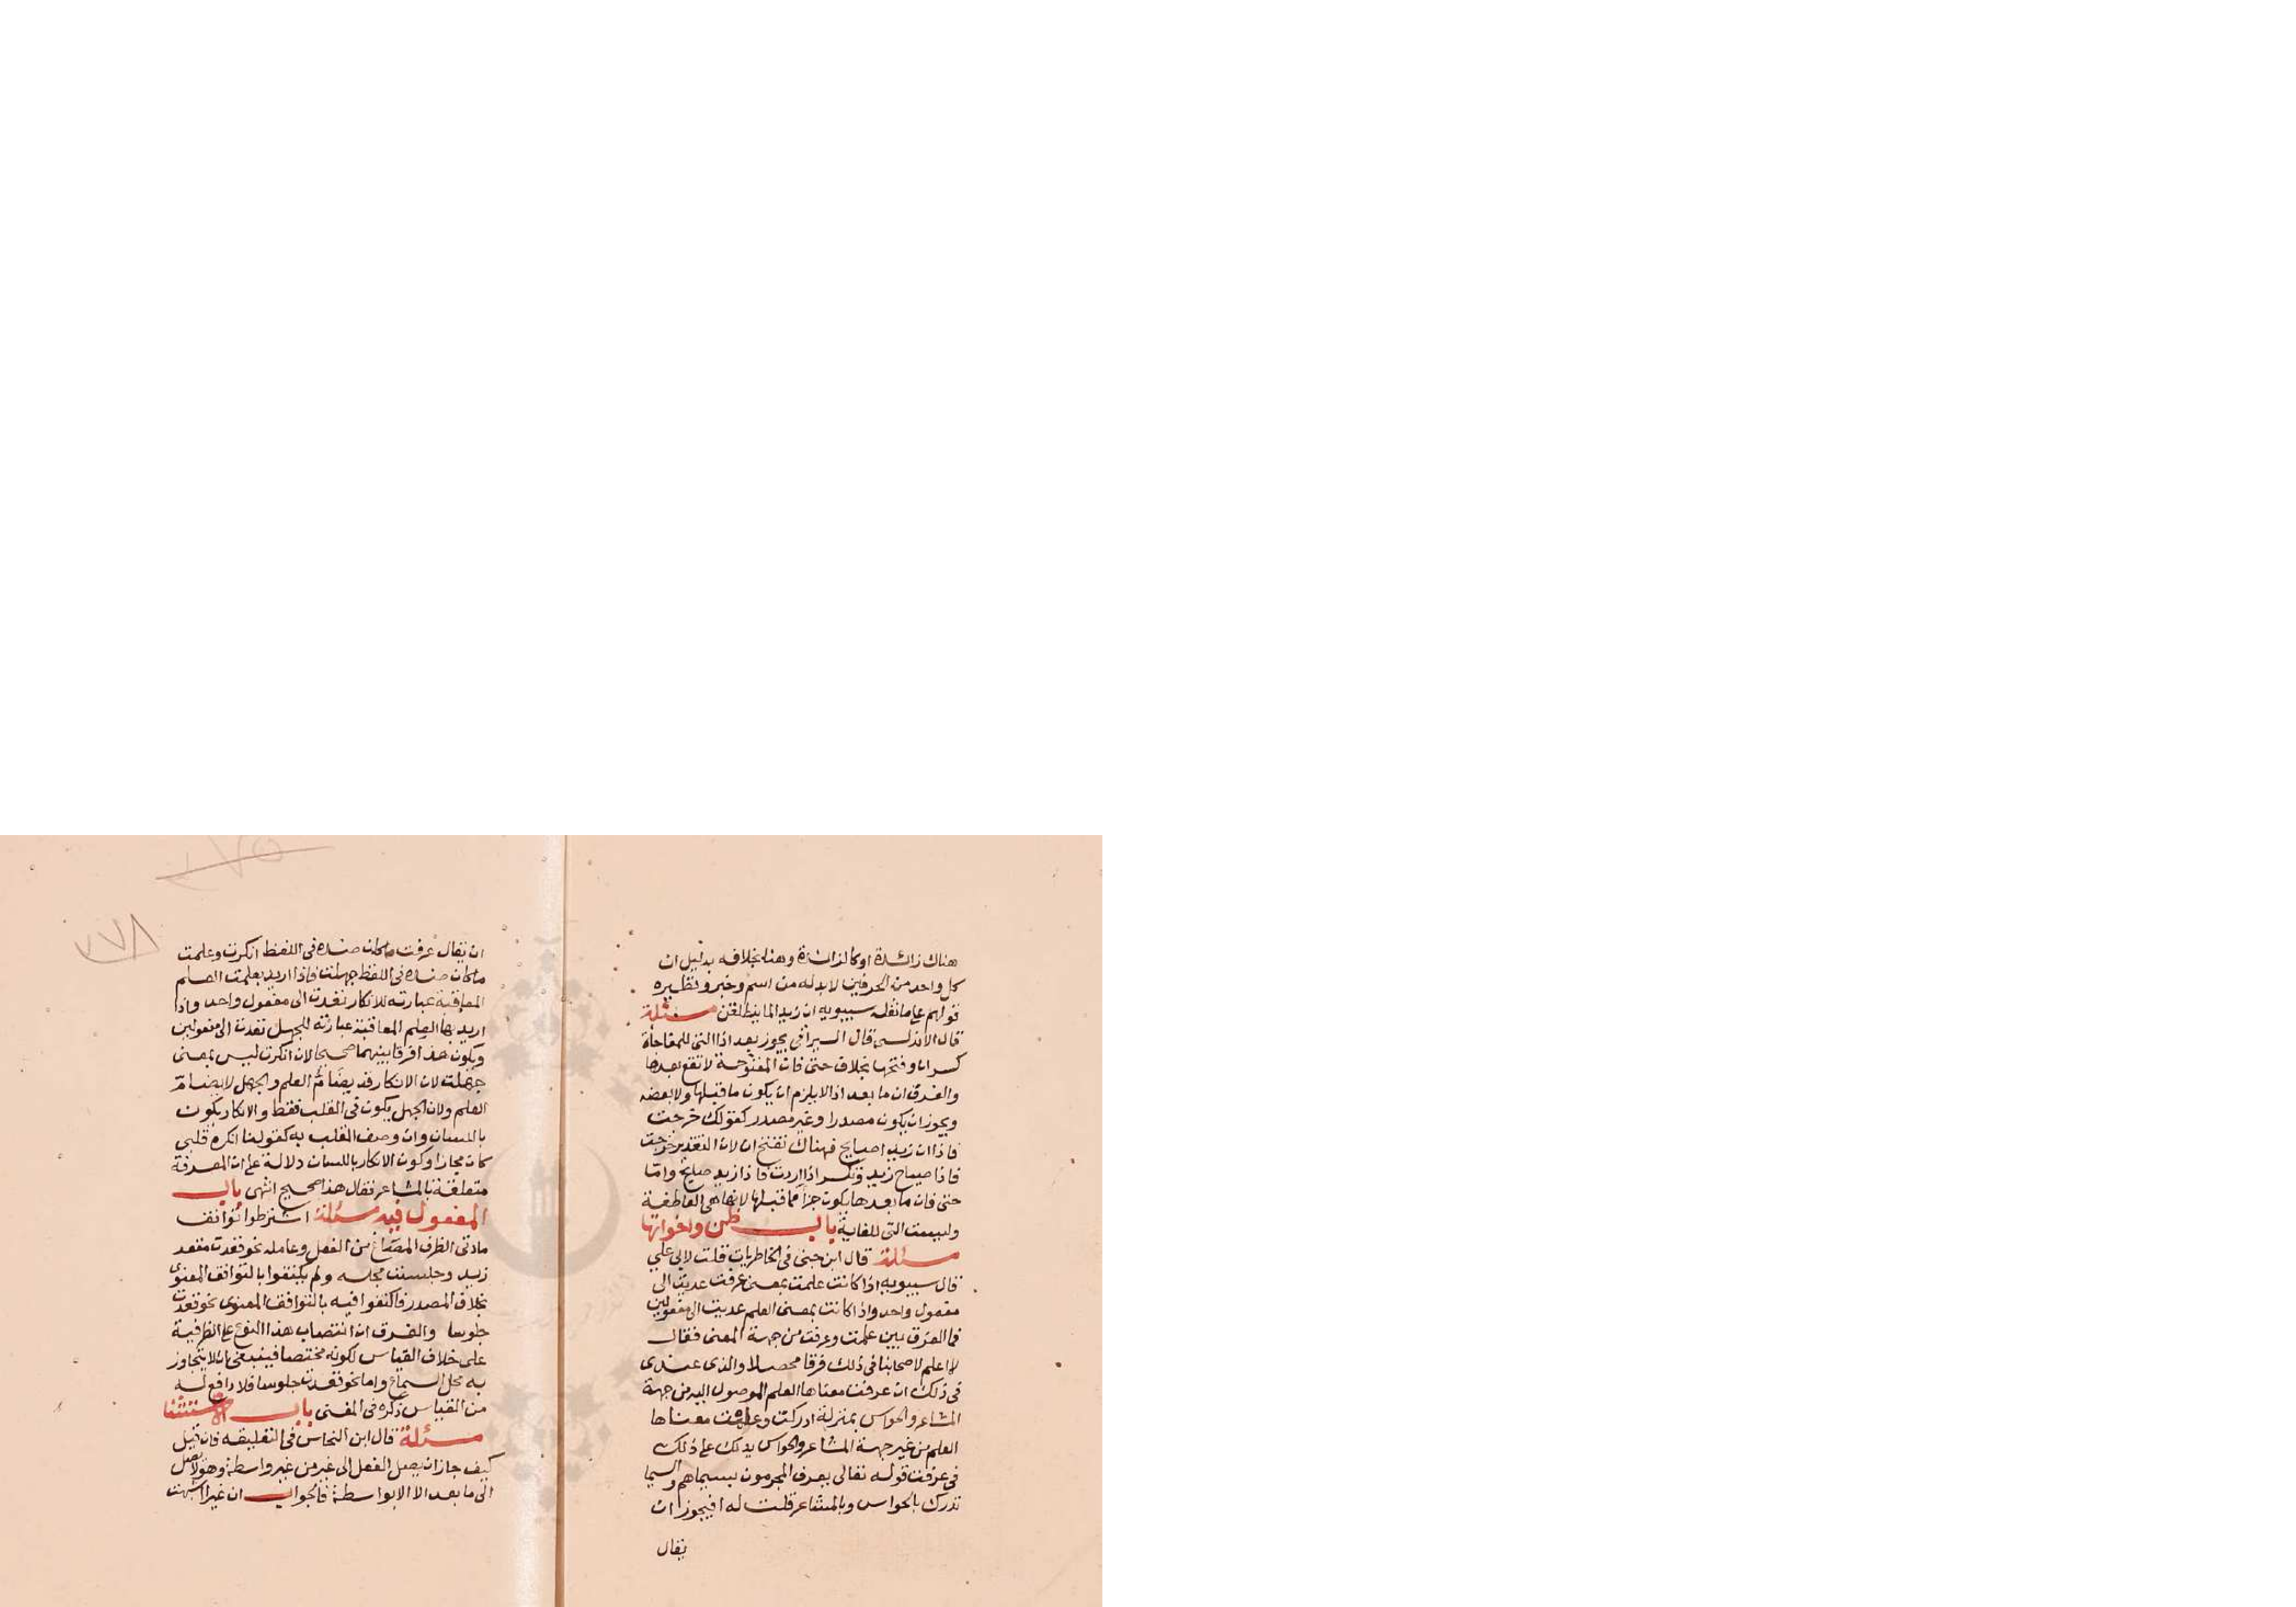 هناك زائدة او كالزائدة وهنا بخلافه بدليل ان
كل واحد من الحرفين لا بد له من اسم وخبر ونظيره
قولهم على ما نقله سيبويه ان زيدا لما لينطلقن مسئلة
قال الاندلسي قال السيرافي يجوز بعد اذا التي للمفاجأة
كسر ان وفتحها بخلاف حتى فان المفتوحة لا تقع بعدها
والفرق ان ما بعد اذا لا يلزم ان يكون ما قبلها ولا بعضه
ويجوز ان يكون مصدرا وغير مصدر كقولك خرجت
فاذا ان زيدا صيايح فهناك تفتح ان لان التقدير خرجت
فاذا صياح زيد وتكسر اذا اردت فاذا زيد صايح واما
حتى فان ما بعدها يكون جزأ مما قبلها لانها هي العاطفة
وليست التي للغاية باب ظن واخواتها
مسئلة قال ابن جنى في الخاطريات قلت لابي علي
قال سيبويه اذا كانت علمت بمعنى عرفت عديت الى
مفعول واحد واذا كانت بمعنى العلم عديت الى مفعولين
فما الفرق بين علمت وعرفت من جهة المعنى فقال
لا اعلم لاصحابنا في ذلك فرقا محصلا والذى عندى
في ذلك ان عرفت معناها العلم الموصول اليه من جهة
المشاعر والحواس بمنزلة ادركت وعلمت معناها
العلم من غير جهة المشاعر والحواس يدلك على ذلك
في عرفت قوله تعالى يعرف المجرمون بسيماهم والسيما
تدرك بالحواس وبالمشاعر قلت له افيجوز ان
يقال
٢٧٨
ان يقال عرفت ما كان ضده في اللفظ انكرت وعلمت
ما كان ضده في اللفظ جهلت فاذا اريد بعلمت العلم
المعاقبة عبارته للانكار تعدت الى مفعول واحد واذا
اريد بها العلم المعاقبة عبارته للجهل تعدت الى مفعولين
ويكون هذا فرقا بينهما صحيحا لان انكرت ليس بمعنى
جهلت لان الانكار قد يضام العلم والجهل لا يضام
العلم ولان الجهل يكون في القلب فقط والانكار يكون
باللسان وان وصف القلب به كقولنا انكره قلبى
كان مجازا وكون الانكار باللسان دلالة على ان المعرفة
متعلقة بالمشاعر فقال هذا صحيح انتهى باب
المفعول فيه مسئلة اشترطوا توافق
مادتى الظرف المصاغ من الفعل وعامله نحو قعدت مقعد
زيد وجلست مجلسه ولم يكتفوا بالتوافق المعنوى
بخلاف المصدر فاكتفوا فيه بالتوافق المعنوى نحو قعدت
جلوسا والفرق ان انتصاب هذا النوع على الظرفية
على خلاف القياس لكونه مختصا فينبغى ان لا يتجاوز
به محل السماع واما نحو قعدت جلوسا فلا دافع له
من القياس ذكره في المغنى باب الاستثنا
مسئلة قال ابن النحاس في التعليقه فان قيل
كيف جاز ان يصل الفعل الى غير من غير واسطة وهو لا يصل
الى ما بعد الا الا بواسطة فالجواب ان غيرا اشبهت